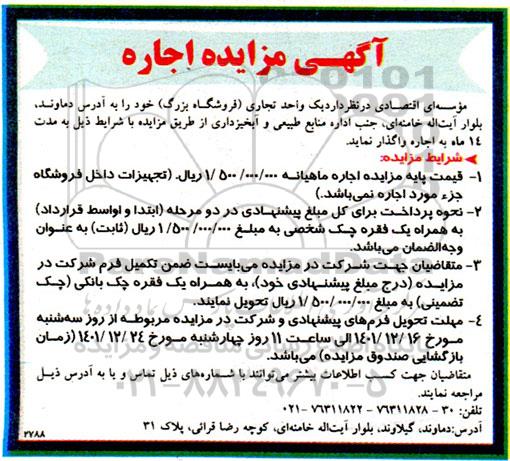 آگهـی مزایده اجاره
مؤسسه‌ای اقتصادی درنظردارد یک واحد تجاری (فروشگاه بزرگ) خود را به آدرس دماوند،
بلوار آیت‌اله خامنه‌ای، جنب اداره منابع طبیعی و آبخیزداری از طریق مزایده با شرایط ذیل به مدت
۱۴ ماه به اجاره واگذار نماید.
شرایط مزایده:
۱- قیمت پایه مزایده اجاره ماهیانه ۱/۵۰۰/۰۰۰/۰۰۰ ریال. (تجهیزات داخل فروشگاه
جزء مورد اجاره نمی‌باشد.)
۲- نحوه پرداخت برای کل مبلغ پیشنهادی در دو مرحله (ابتدا و اواسط قرارداد)
به همراه یک فقره چک شخصی به مبلغ ۱/۵۰۰/۰۰۰/۰۰۰ ریال (ثابت) به عنوان
وجه‌الضمان می‌باشد.
۳- متقاضیان جهت شرکت در مزایده می‌بایست ضمن تکمیل فرم شرکت در
مزایده (درج مبلغ پیشنهادی خود)، به همراه یک فقره چک بانکی (چک
تضمینی) به مبلغ ۱/۵۰۰/۰۰۰/۰۰۰ ریال تحویل نمایند.
۴- مهلت تحویل فرم‌های پیشنهادی و شرکت در مزایده مربوطه از روز سه‌شنبه
مورخ ۱۴۰۱/۱۲/۱۶ الی ساعت ۱۱ روز چهارشنبه مورخ ۱۴۰۱/۱۲/۲۴ (زمان
بازگشایی صندوق مزایده) می‌باشد.
متقاضیان جهت کسب اطلاعات بیشتر می‌توانند با شماره‌های ذیل تماس و یا به آدرس ذیل
مراجعه نمایند.
تلفن: ۳۰ - ۷۶۳۱۱۸۲۸ - ۷۶۳۱۱۸۲۲-۰۲۱
آدرس:دماوند، گیلاوند، بلوار آیت‌اله خامنه‌ای، کوچه رضا قرائی، پلاک ۳۱
۲۷۸۸
۰۲۱-۸۸۳۴۹۶۷۰-۵